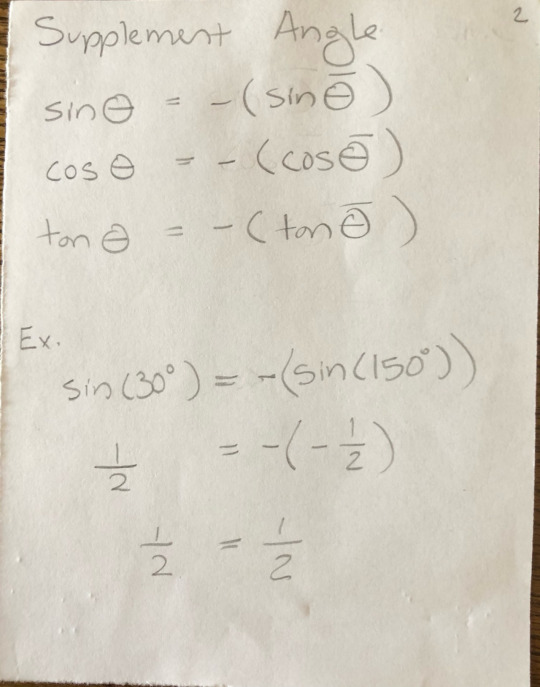 2
Supplement Angle
sinθ = -(sinθ̅)
cosθ = -(cosθ̅)
tanθ = -(tanθ̅)
Ex.
sin(30°) = -(sin(150°))
1/2 = -(-1/2)
1/2 = 1/2